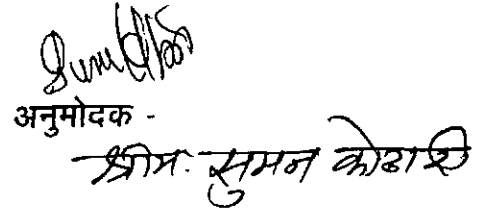 अनुमोदक -
श्रीम. सुमन कोठारी